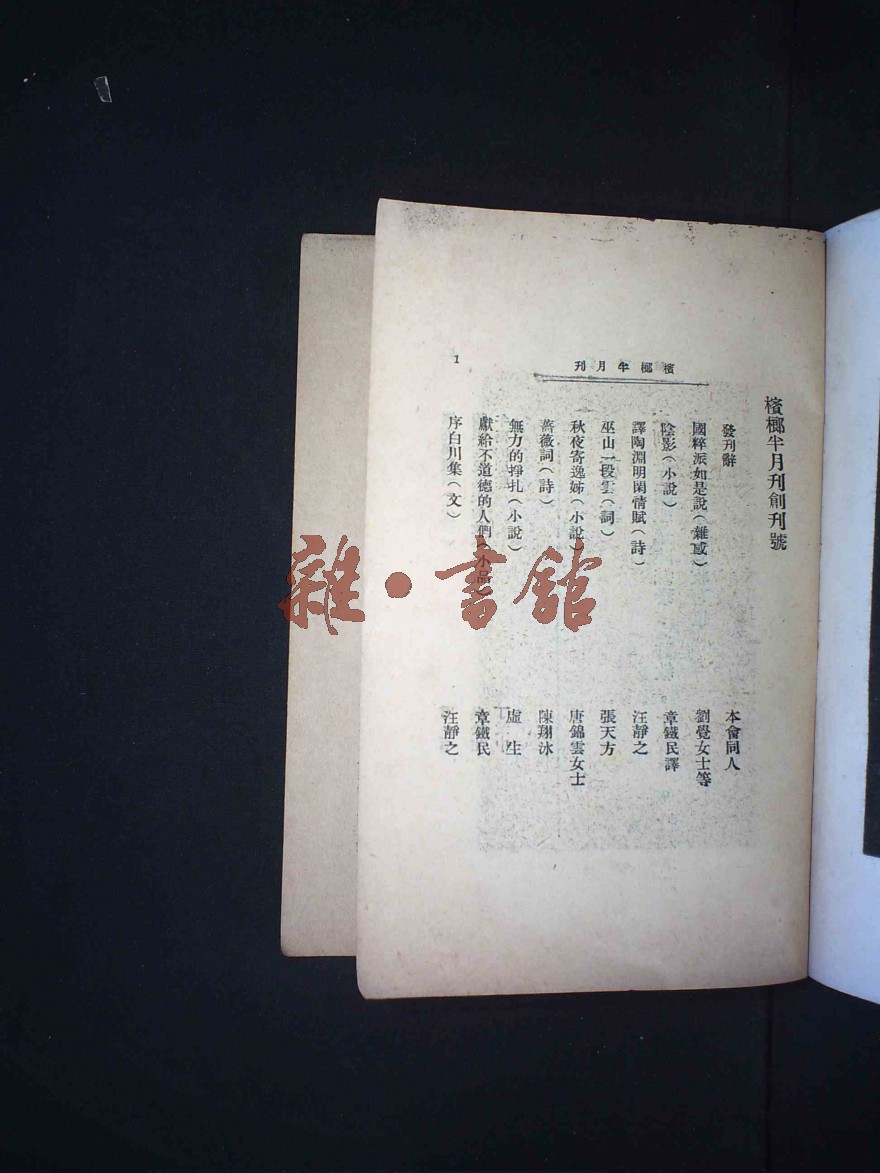 檳榔半月刊創刊號
刊月半榔檳
1
發刊辭 本會同人
國粹派如是說(雜感) 劉覺女士等
陰影(小說) 章鐵民譯
譯陶淵明閑情賦(詩) 汪靜之
巫山一段雲(詞) 張天方
秋夜寄逸姊(小說) 唐錦雲女士
薔薇詞(詩) 陳翔冰
無力的掙扎(小說) 虛生
獻給不道德的人們(小品) 章鐵民
序白川集(文) 汪靜之
雜·書館